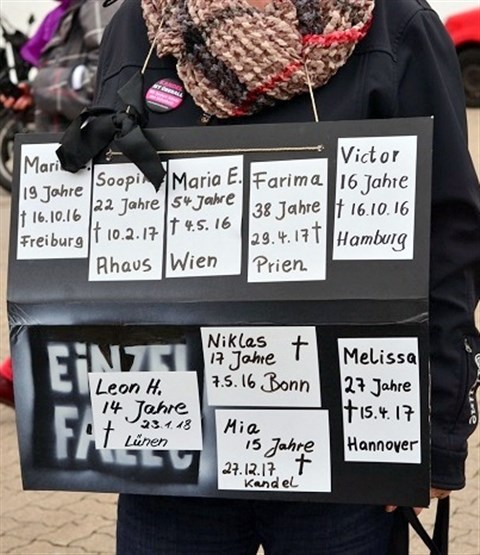 Maria
19 Jahre
† 16.10.16
Freiburg
Soopika
22 Jahre
† 10.2.17
Ahaus
Maria E.
54 Jahre
† 4.5.16
Wien
Farima
38 Jahre
29.4.17 †
Prien
Victor
16 Jahre
† 16.10.16
Hamburg
EiNZEL
FÄLLE
Leon H.
14 Jahre
† 23.1.18
Lünen
Niklas †
17 Jahre
7.5.16 Bonn
Mia
15 Jahre
27.12.17 †
Kandel
Melissa
27 Jahre
† 15.4.17
Hannover